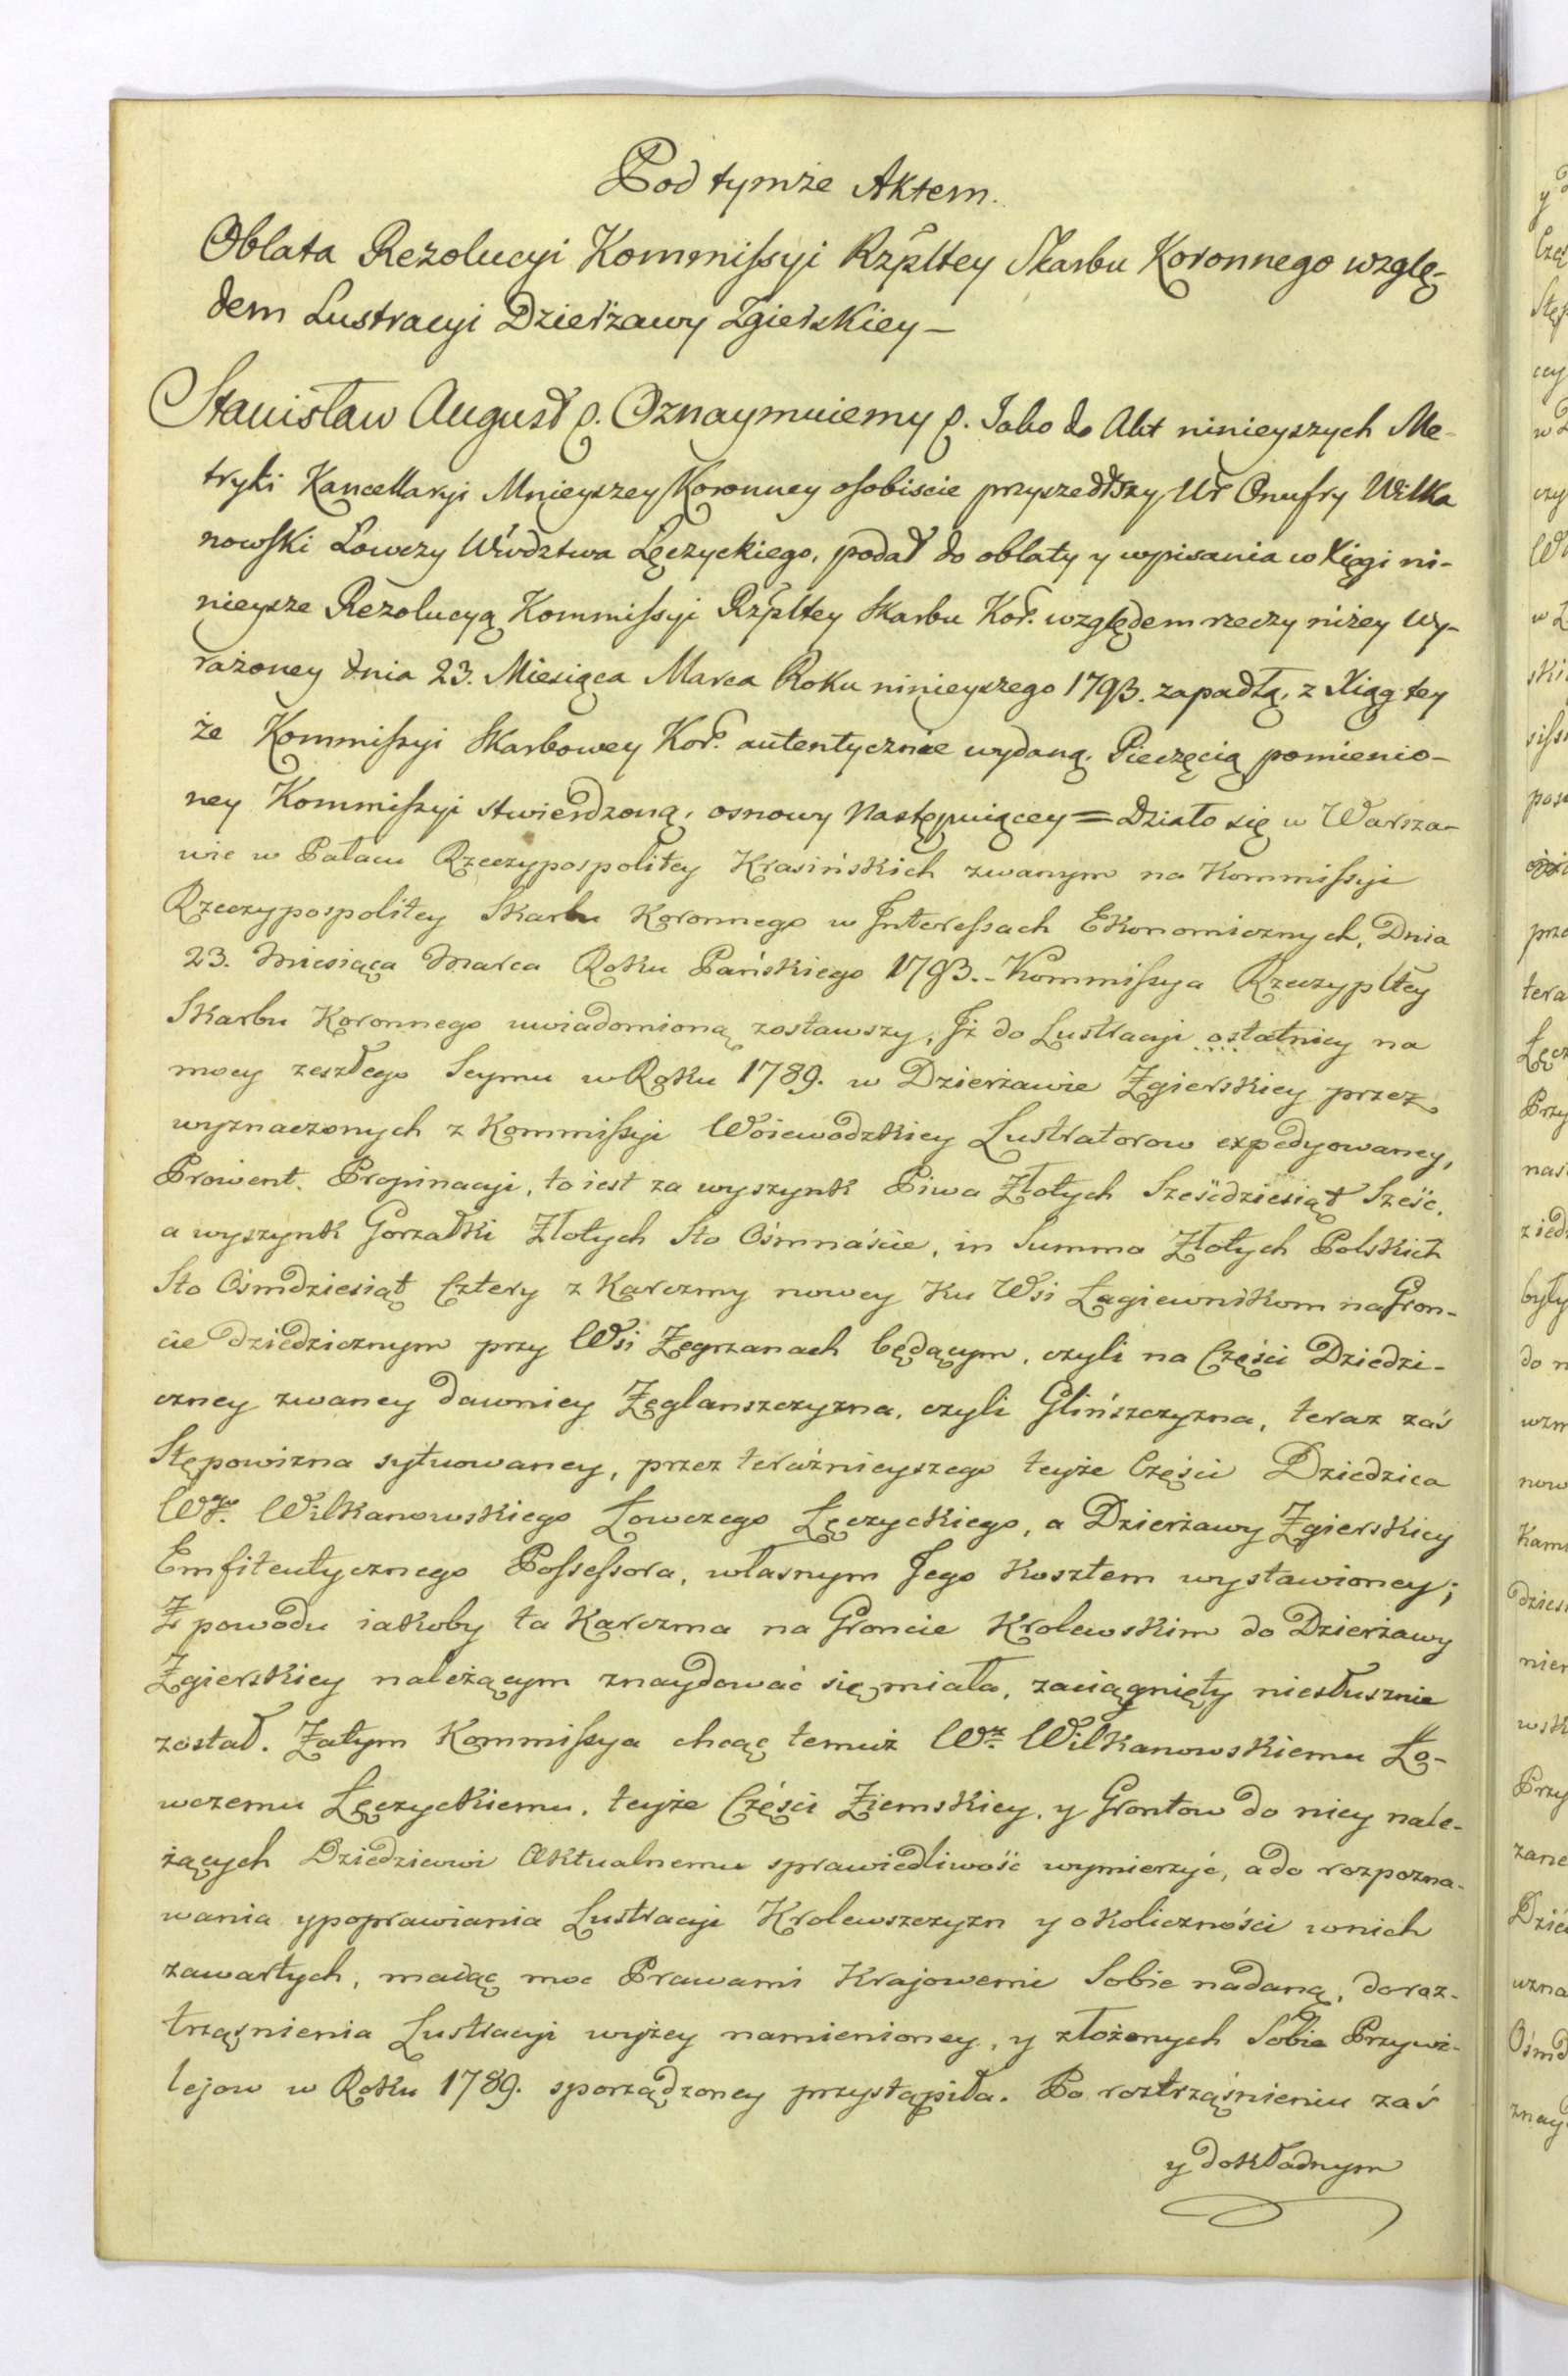 Pod tymże Aktem.
Oblata Rezolucyi Kommissyi Rzpltey Skarbu Koronnego wzglę-
dem Lustracyi Dzierżawy Zgierskiey —
Stanisław August &. Oznaymuiemy &. Iako do Akt ninieyszych Me-
tryki Kancellaryi Mnieyszey Koronney osobiscie przyszedłszy Ur Onufry Wilka
nowski Łowczy Wwdztwa Łęczyckiego, podał do oblaty y wpisania w Xięgi ni-
nieysze Rezolucyą Kommissyi Rzpltey Skarbu Kor. względem rzeczy niżey wy-
rażoney dnia 23. Miesiąca Marca Roku ninieyszego 1793. zapadłą, z Xiąg tey
że Kommissyi Skarbowey Kor. autentycznie wydaną. Pieczęcią pomienio-
ney Kommissyi stwierdzoną, osnowy następuiącey = Działo się w Warsza-
wie w Pałacu Rzeczypospolitey Krasińskich zwanym na Kommissyi
Rzeczypospolitey Skarbu Koronnego w Interessach Ekonomicznych, Dnia
23. Miesiąca Marca Roku Pańskiego 1793. - Kommissya Rzeczypltey
Skarbu Koronnego uwiadomioną zostawszy, Iż do Lustracyi ostatniey na
mocy zeszłego Seymu w Roku 1789. w Dzierżawie Zgierskiey przez
wyznaczonych z Kommissyi Woiewodzkiey Lustratorow expedyowaney,
Prowent Propinacyi, to iest za wyszynk Piwa Złotych Sześćdziesiąt Sześć,
a wyszynk Gorzałki Złotych Sto Ośmnaście, in Summa Złotych Polskich
Sto Ośmdziesiąt Cztery z Karczmy nowey ku Wsi Łagiewnikom na Gron-
cie dziedzicznym przy Wsi Zegrzanach będącym, czyli na Części Dziedzi-
czney zwaney dawniey Żeglanszczyzna, czyli Glińszczyzna, teraz zaś
Stępowizna sytuowaney, przez teraźnieyszego teyże Części Dziedzica
Wgo. Wilkanowskiego Łowczego Łęczyckiego, a Dzierżawy Zgierskiey
Emfiteutycznego Possessora, własnym Jego Kosztem wystawioney;
Z powodu iakoby ta Karczma na Groncie Krolewskim do Dzierżawy
Zgierskiey należącym znaydować się miała, zaciągnięty niesłusznie
został. Zatym Kommissya chcąc temuż Wż. Wilkanowskiemu Ło-
wczemu Łęczyckiemu, teyże Części Ziemskiey, y Grontow do niey nale-
żących Dziedzicowi Aktualnemu sprawiedliwość wymierzyć, a do rozpozna-
wania y poprawiania Lustracyi Krolewszczyzn y okoliczności w nich
zawartych, maiąc moc Prawami Krajowemi Sobie nadaną, do roz-
trząśnienia Lustracyi wyżey namienioney, y złożonych Sobie Przywi-
lejow w Roku 1789. sporządzoney przystąpiła. Po roztrząśnieniu zaś
y dokładnym